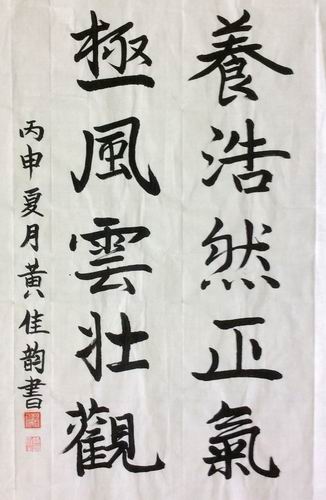 養浩然正氣
極風雲壯觀
丙申夏月黄佳韵書